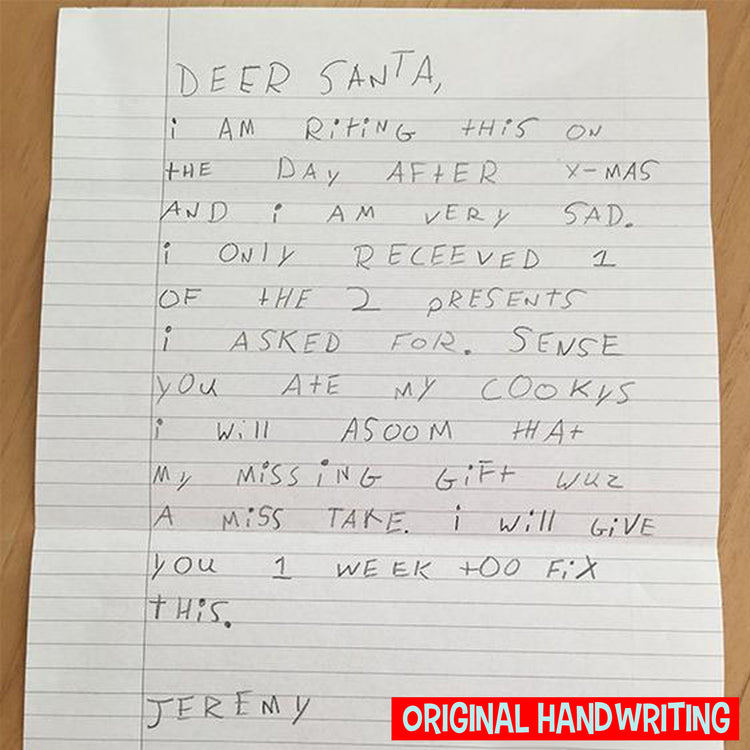 DEER SANTA,
i AM RiTiNG tHiS ON
tHE DAY AFtER X-MAS
AND i AM VERY SAD.
i ONlY RECEEVED 1
OF tHE 2 PRESENtS
i ASKED FOR. SENSE
YOu AtE MY COOKYS
i Will ASOOM tHAt
MY MiSSiNG GiFt WUZ
A MiSS TAKE. i Will GiVE
YOU 1 WEEK tOO FiX
tHiS.
JEREMY
ORIGINAL HANDWRITING